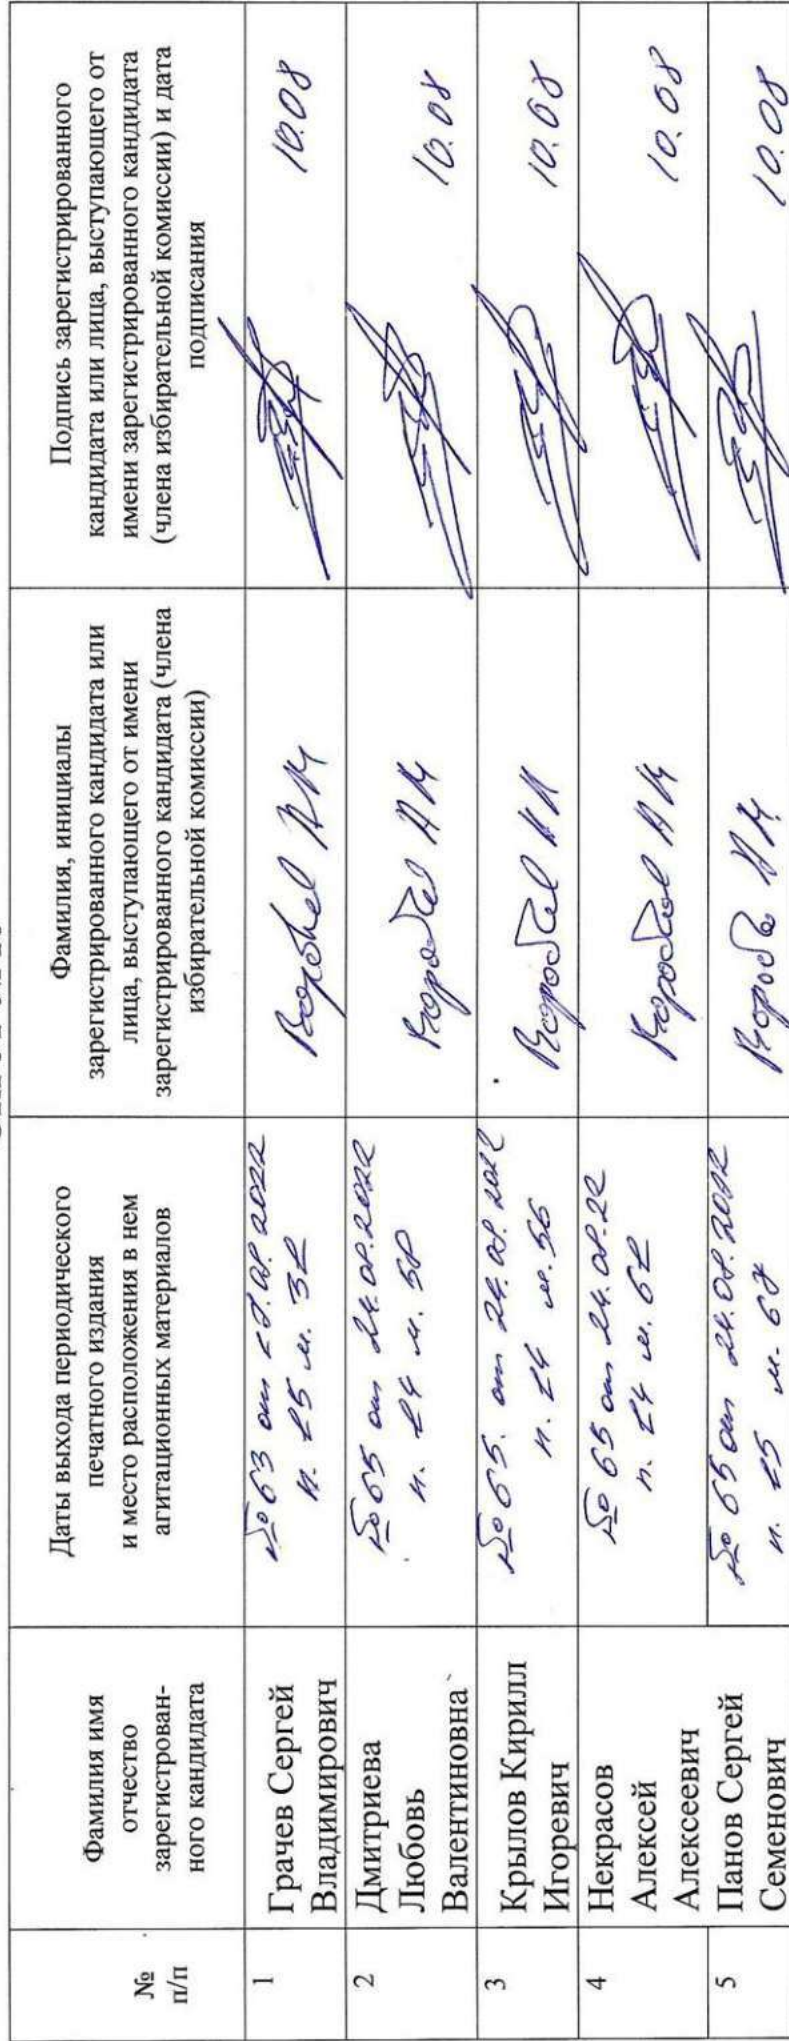 №
п/п
Фамилия имя
отчество
зарегистрирован-
ного кандидата
Даты выхода периодического
печатного издания
и место расположения в нем
агитационных материалов
Фамилия, инициалы
зарегистрированного кандидата или
лица, выступающего от имени
зарегистрированного кандидата (члена
избирательной комиссии)
Подпись зарегистрированного
кандидата или лица, выступающего от
имени зарегистрированного кандидата
(члена избирательной комиссии) и дата
подписания
1
Грачев Сергей
Владимирович
№ 63 от 2022
п. 25 м. 32
10.08
2
Дмитриева
Любовь
Валентиновна
№ 65 от 24.08.2022
п. 24 м.
10.08
3
Крылов Кирилл
Игоревич
№ 65. от 24.08.2022
п. 24 м. 56
10.08
4
Некрасов
Алексей
Алексеевич
№ 65 от 24.08.22
п. 24 м. 62
10.08
5
Панов Сергей
Семенович
№ 65 от 24.08.2022
п. 25 м. 67
10.08